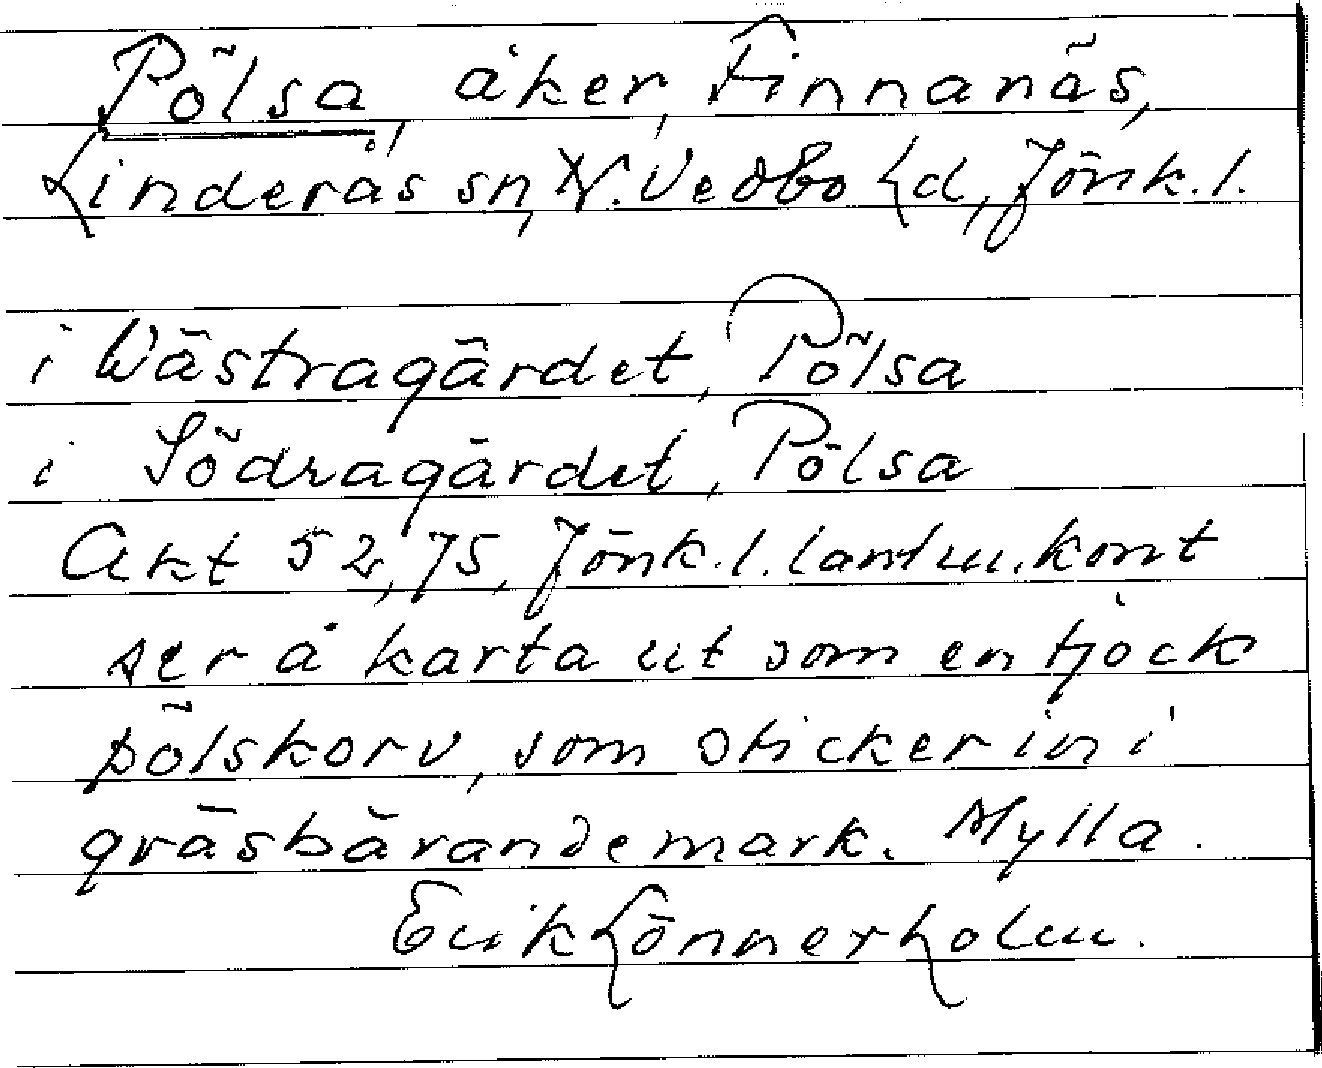 Pölsa, åker, Finnanäs,
Linderås sn, N. Vedbo hd, Jönk. l.
i Wästragärdet, Pölsa
i Södragärdet, Pölsa
Akt 52, 75, Jönk. l. lantm. kont
ser å karta ut som en tjock
pölskorv, som sticker in i
gräsbärande mark. Mylla.
Erik Lönnerholm.